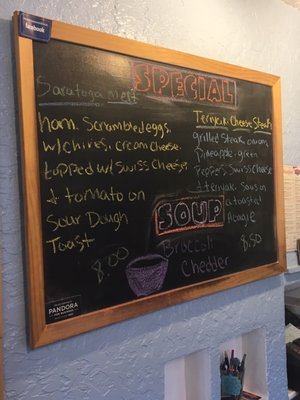 facebook
SPECIAL
Saratoga Melt
ham, Scrambled eggs,
w/chives, cream cheese
topped w/ Swiss Cheese
& tomato on
Sour Dough
Toast
8.00
Cheese Steak
grilled Steak, onion,
Pineapple - green
Peppers, Swiss Cheese
on
a toasted
Hoagie
8.50
SOUP
Broccoli
Chedder
PANDORA